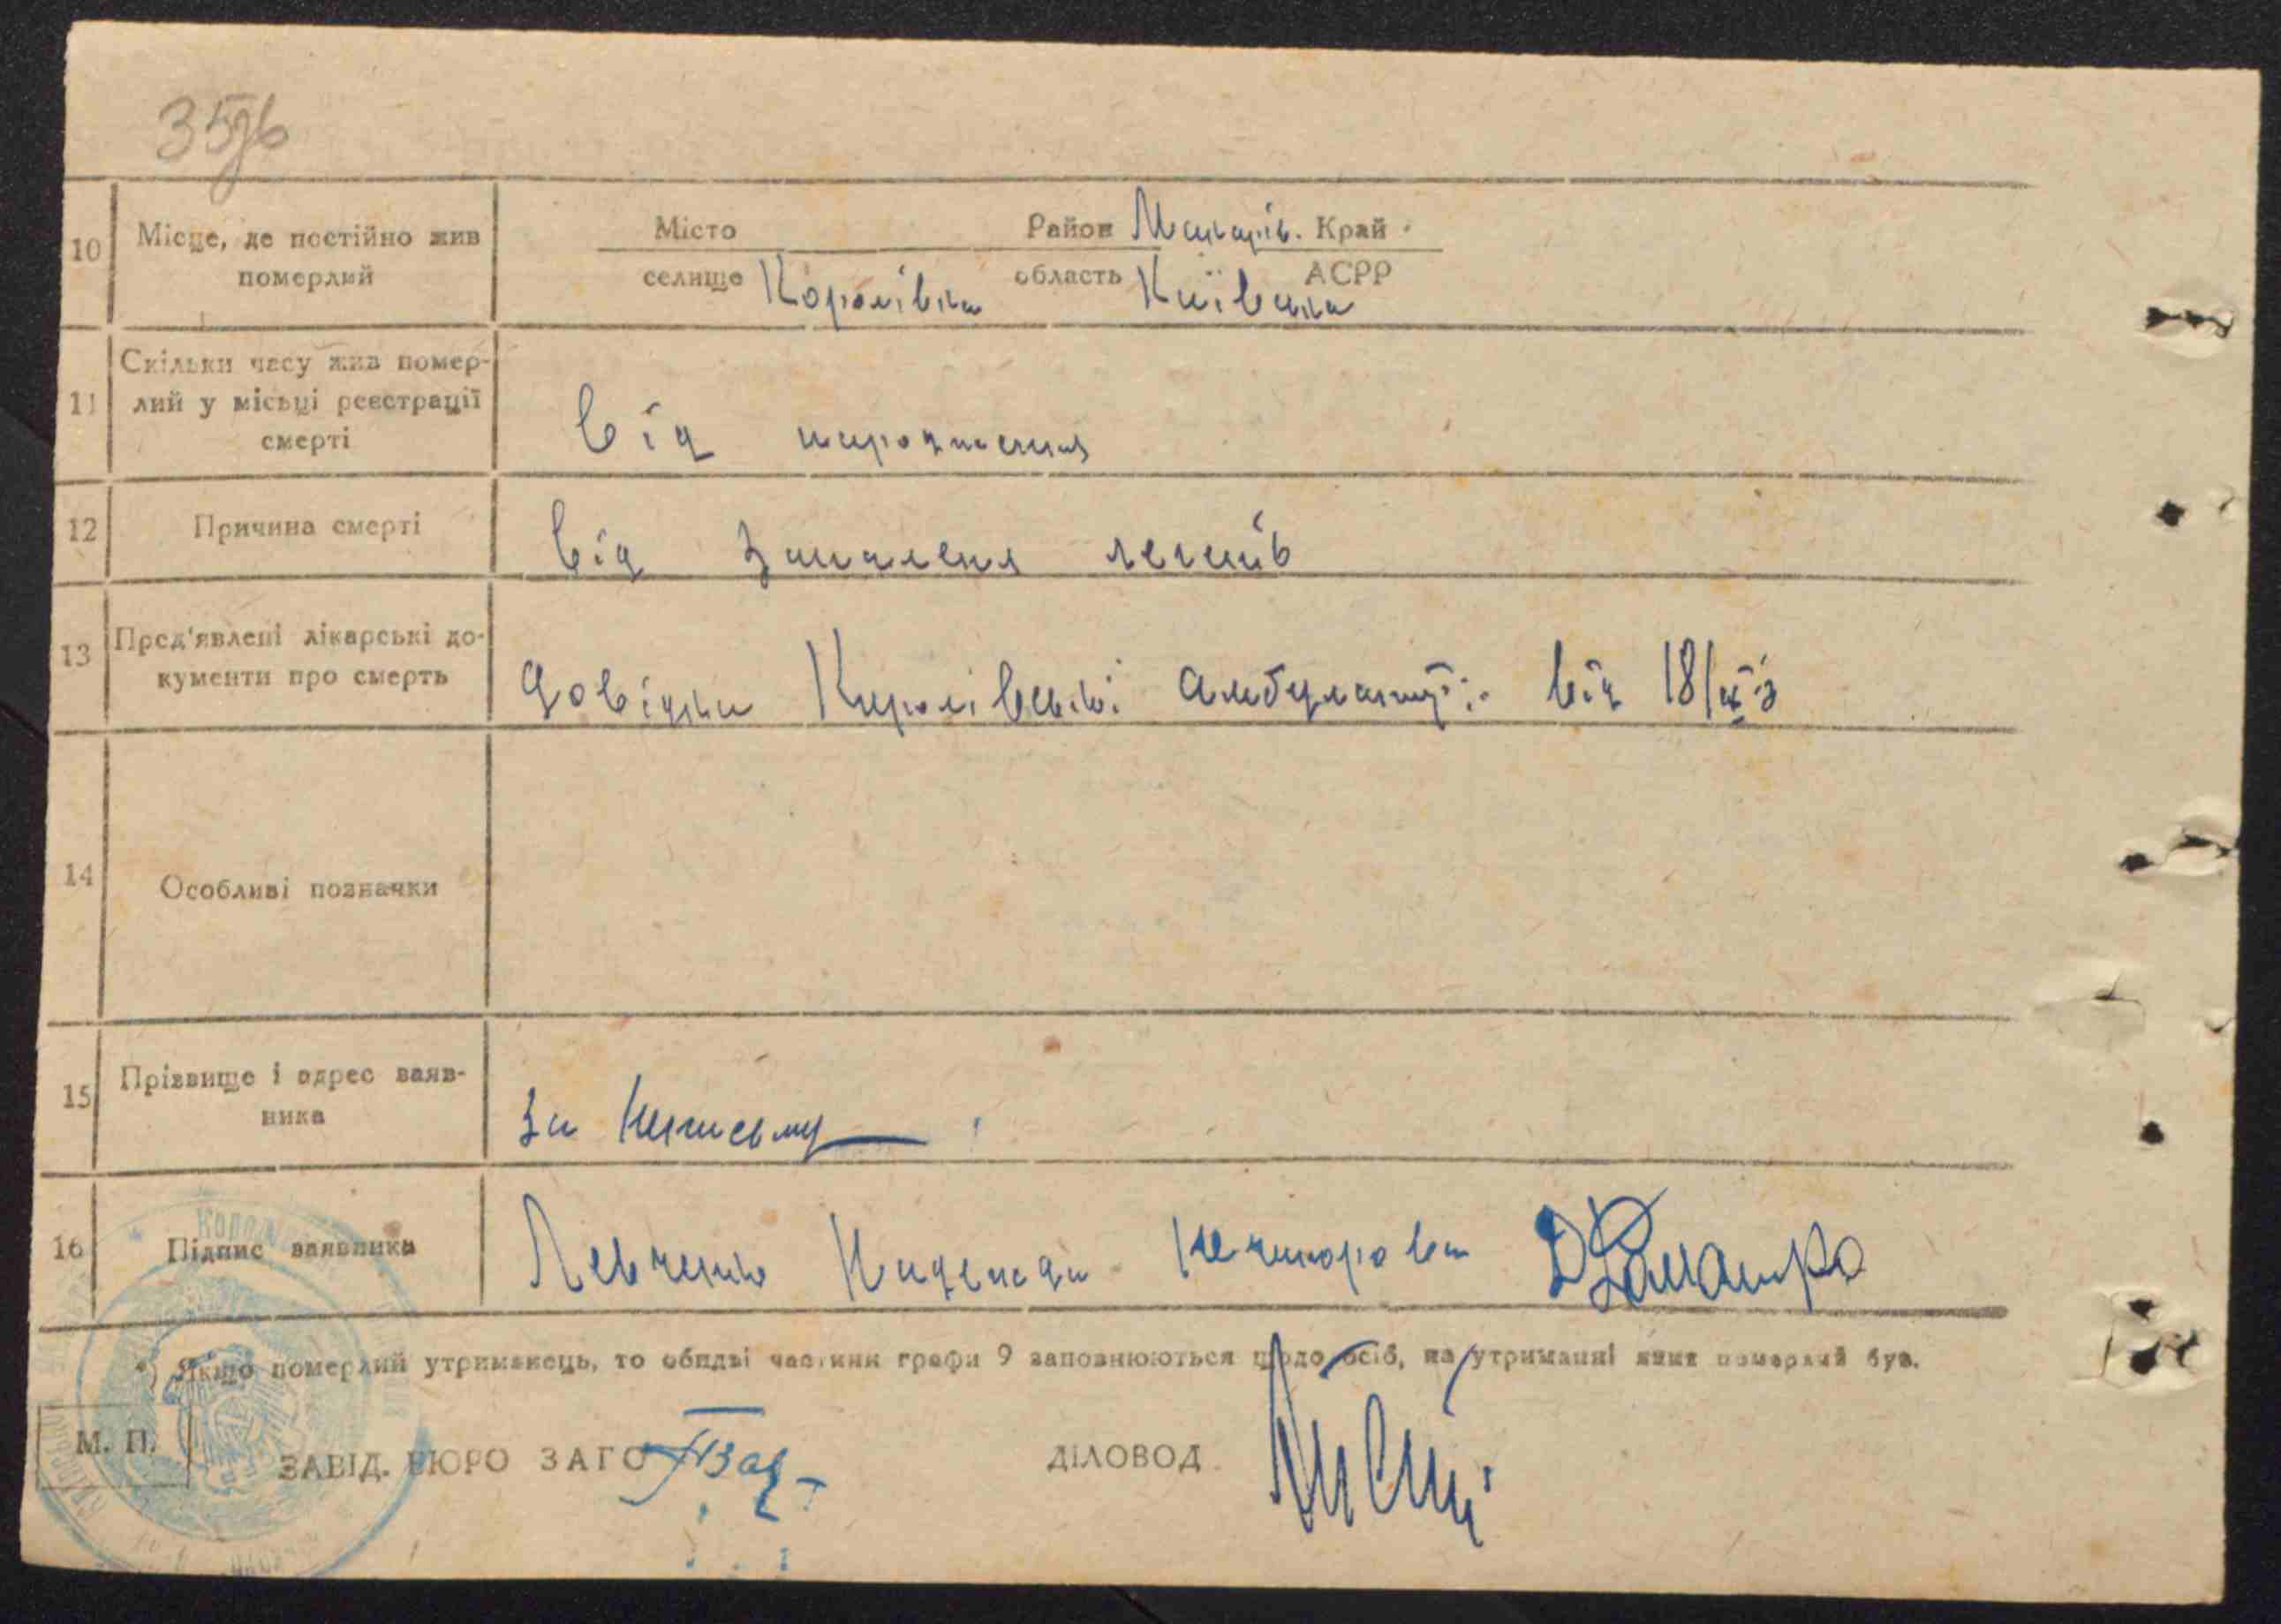 35зв
10 Місце, де постійно жив померлий
Місто Район Макарів. Край
селище Королівка область Київська АСРР
11 Скільки часу жив помер-
лий у місьці реєстрації
смерті
від народження
12 Причина смерті
від запалення легенів
13 Пред'явлені лікарські до-
кументи про смерть
довідка Королівської амбулаторії від 18/
14 Особливі позначки
15 Прізвище і адрес заяв-
ника
за
16 Підпис заявника
Левченко Надежда
*) Якщо померлий утриманець, то обидві частини графи 9 заповнюються щодо осіб, на утриманні яких померлий був.
М. П.
ЗАВІД. БЮРО ЗАГС
ДІЛОВОД